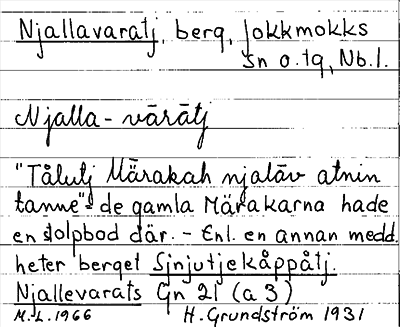 Njallavaratj, berg, Jokkmokks
sn o. tg, Nb. l.
Njalla-vārātj
"Tålutj Märakah njalāv atnin
tanne"- de gamla Märakarna hade
en stolpbod där. - Enl. en annan medd.
heter berget Sjnjutjekåppåtj.
Njallevarats Gn 21 (a3)
M.L. 1966 H. Grundström 1931